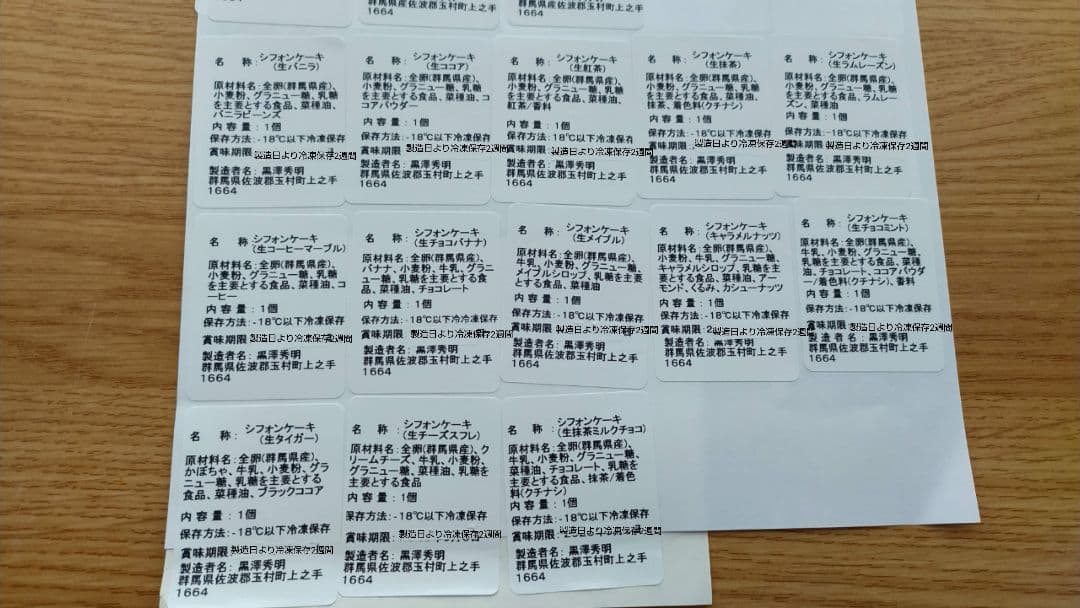 1664
群馬県佐波郡玉村町上之手
1664
群馬県佐波郡玉村町上之手
1664
名 称: シフォンケーキ
(生バニラ)
原材料名: 全卵(群馬県産)、
小麦粉、グラニュー糖、乳糖
を主要とする食品、菜種油、
バニラビーンズ
内 容 量 : 1個
保存方法: -18℃以下冷凍保存
賞味期限 製造日より冷凍保存2週間
製造者名: 黒澤秀明
群馬県佐波郡玉村町上之手
1664
名 称: シフォンケーキ
(生ココア)
原材料名: 全卵(群馬県産)、
小麦粉、グラニュー糖、乳糖
を主要とする食品、菜種油、コ
コアパウダー
内 容 量 : 1個
保存方法: -18℃以下冷凍保存
賞味期限 製造日より冷凍保存2週間
製造者名: 黒澤秀明
群馬県佐波郡玉村町上之手
1664
名 称: シフォンケーキ
(生紅茶)
原材料名: 全卵(群馬県産)、
小麦粉、グラニュー糖、乳糖
を主要とする食品、菜種油、
紅茶/香料
内 容 量 : 1個
保存方法: 18℃以下冷凍保存
賞味期限 製造日より冷凍保存2週間
製造者名: 黒澤秀明
群馬県佐波郡玉村町上之手
1664
名 称: シフォンケーキ
(生抹茶)
原材料名: 全卵(群馬県産)、
小麦粉、グラニュー糖、乳糖
を主要とする食品、菜種油、
抹茶、着色料(クチナシ)
内 容 量 : 1個
保存方法: -18℃以下冷凍保存
賞味期限: 製造日より冷凍保存2週間
製造者名: 黒澤秀明
群馬県佐波郡玉村町上之手
1664
名 称: シフォンケーキ
(生ラムレーズン)
原材料名: 全卵(群馬県産)、
小麦粉、グラニュー糖、乳糖
を主要とする食品、ラムレー
ズン、菜種油
内 容 量 : 1個
保存方法: -18℃以下冷凍保存
賞味期限 製造日より冷凍保存2週間
製造者名: 黒澤秀明
群馬県佐波郡玉村町上之手
1664
名 称: シフォンケーキ
(生コーヒーマーブル)
原材料名: 全卵(群馬県産)、
小麦粉、グラニュー糖、乳糖
を主要とする食品、菜種油、コ
ーヒー
内 容 量 : 1個
保存方法: -18℃以下冷凍保存
賞味期限 製造日より冷凍保存2週間
製造者名: 黒澤秀明
群馬県佐波郡玉村町上之手
1664
名 称: シフォンケーキ
(生チョコバナナ)
原材料名: 全卵(群馬県産)、
バナナ、小麦粉、牛乳、グラニ
ュー糖、乳糖を主要とする食
品、菜種油、チョコレート
内 容 量 : 1個
保存方法: -18℃以下冷凍保存
賞味期限 製造日より冷凍保存2週間
製造者名: 黒澤秀明
群馬県佐波郡玉村町上之手
1664
名 称: シフォンケーキ
(生メイプル)
原材料名: 全卵(群馬県産)、
牛乳、小麦粉、グラニュー糖、
メイプルシロップ、乳糖を主要
とする食品、菜種油
内 容 量 : 1個
保存方法: -18℃以下冷凍保存
賞味期限 製造日より冷凍保存2週間
製造者名: 黒澤秀明
群馬県佐波郡玉村町上之手
1664
名 称: シフォンケーキ
(キャラメルナッツ)
原材料名: 全卵(群馬県産)、
小麦粉、牛乳、グラニュー糖、
キャラメルシロップ、乳糖を主
要とする食品、菜種油、アー
モンド、くるみ、カシューナッツ
内 容 量 : 1個
保存方法: -18℃以下冷凍保存
賞味期限: 2 製造日より冷凍保存2週間
製造者名: 黒澤秀明
群馬県佐波郡玉村町上之手
1664
名 称: シフォンケーキ
(生チョコミント)
原材料名: 全卵(群馬県産)、
牛乳、小麦粉、グラニュー糖、
乳糖を主要とする食品、菜種
油、チョコレート、ココアパウダ
ー/着色料(クチナシ)、香料
内 容 量 : 1個
保存方法: -18℃以下冷凍保存
賞味期限 製造日より冷凍保存2週間
製造者名: 黒澤秀明
群馬県佐波郡玉村町上之手
1664
名 称: シフォンケーキ
(生タイガー)
原材料名: 全卵(群馬県産)、
かぼちゃ、牛乳、小麦粉、グラ
ニュー糖、乳糖を主要とする
食品、菜種油、ブラックココア
内 容 量 : 1個
保存方法: -18℃以下冷凍保存
賞味期限 製造日より冷凍保存2週間
製造者名: 黒澤秀明
群馬県佐波郡玉村町上之手
1664
名 称: シフォンケーキ
(生チーズスフレ)
原材料名: 全卵(群馬県産)、ク
リームチーズ、牛乳、小麦粉、
グラニュー糖、菜種油、乳糖を
主要とする食品
内 容 量 : 1個
保存方法: -18℃以下冷凍保存
賞味期限: 製造日より冷凍保存2週間
製造者名: 黒澤秀明
群馬県佐波郡玉村町上之手
1664
名 称: シフォンケーキ
(生抹茶ミルクチョコ)
原材料名: 全卵(群馬県産)、
牛乳、小麦粉、グラニュー糖、
菜種油、チョコレート、乳糖を
主要とする食品、抹茶/着色
料(クチナシ)
内 容 量 : 1個
保存方法: -18℃以下冷凍保存
賞味期限: 製造日より冷凍保存2週間
製造者名: 黒澤秀明
群馬県佐波郡玉村町上之手
1664